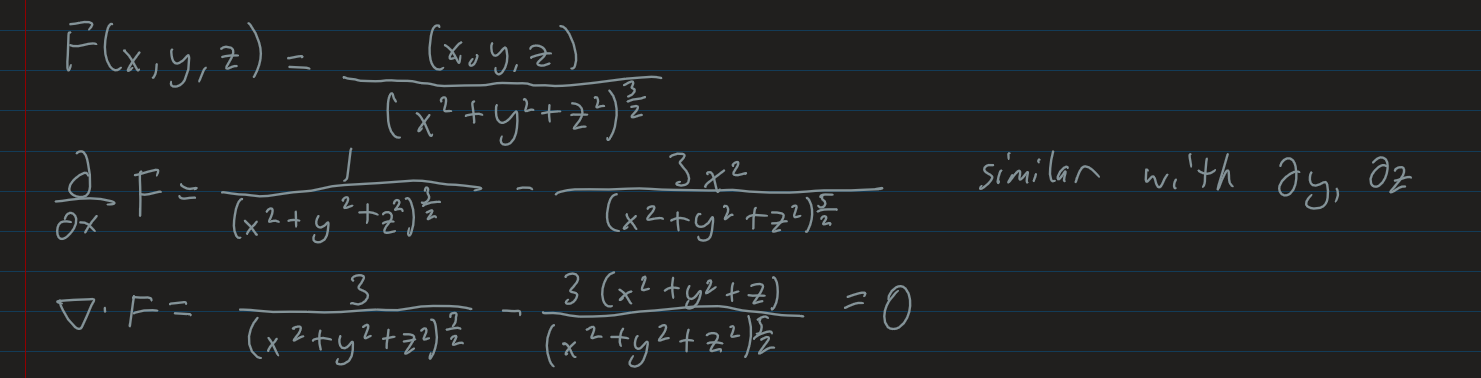 F(x, y, z) = (x, y, z) / (x² + y² + z²)^(3/2)
∂/∂x F = 1 / (x² + y² + z²)^(3/2) - 3x² / (x² + y² + z²)^(5/2) similar with ∂y, ∂z
∇·F = 3 / (x² + y² + z²)^(3/2) - 3(x² + y² + z) / (x² + y² + z²)^(5/2) = 0